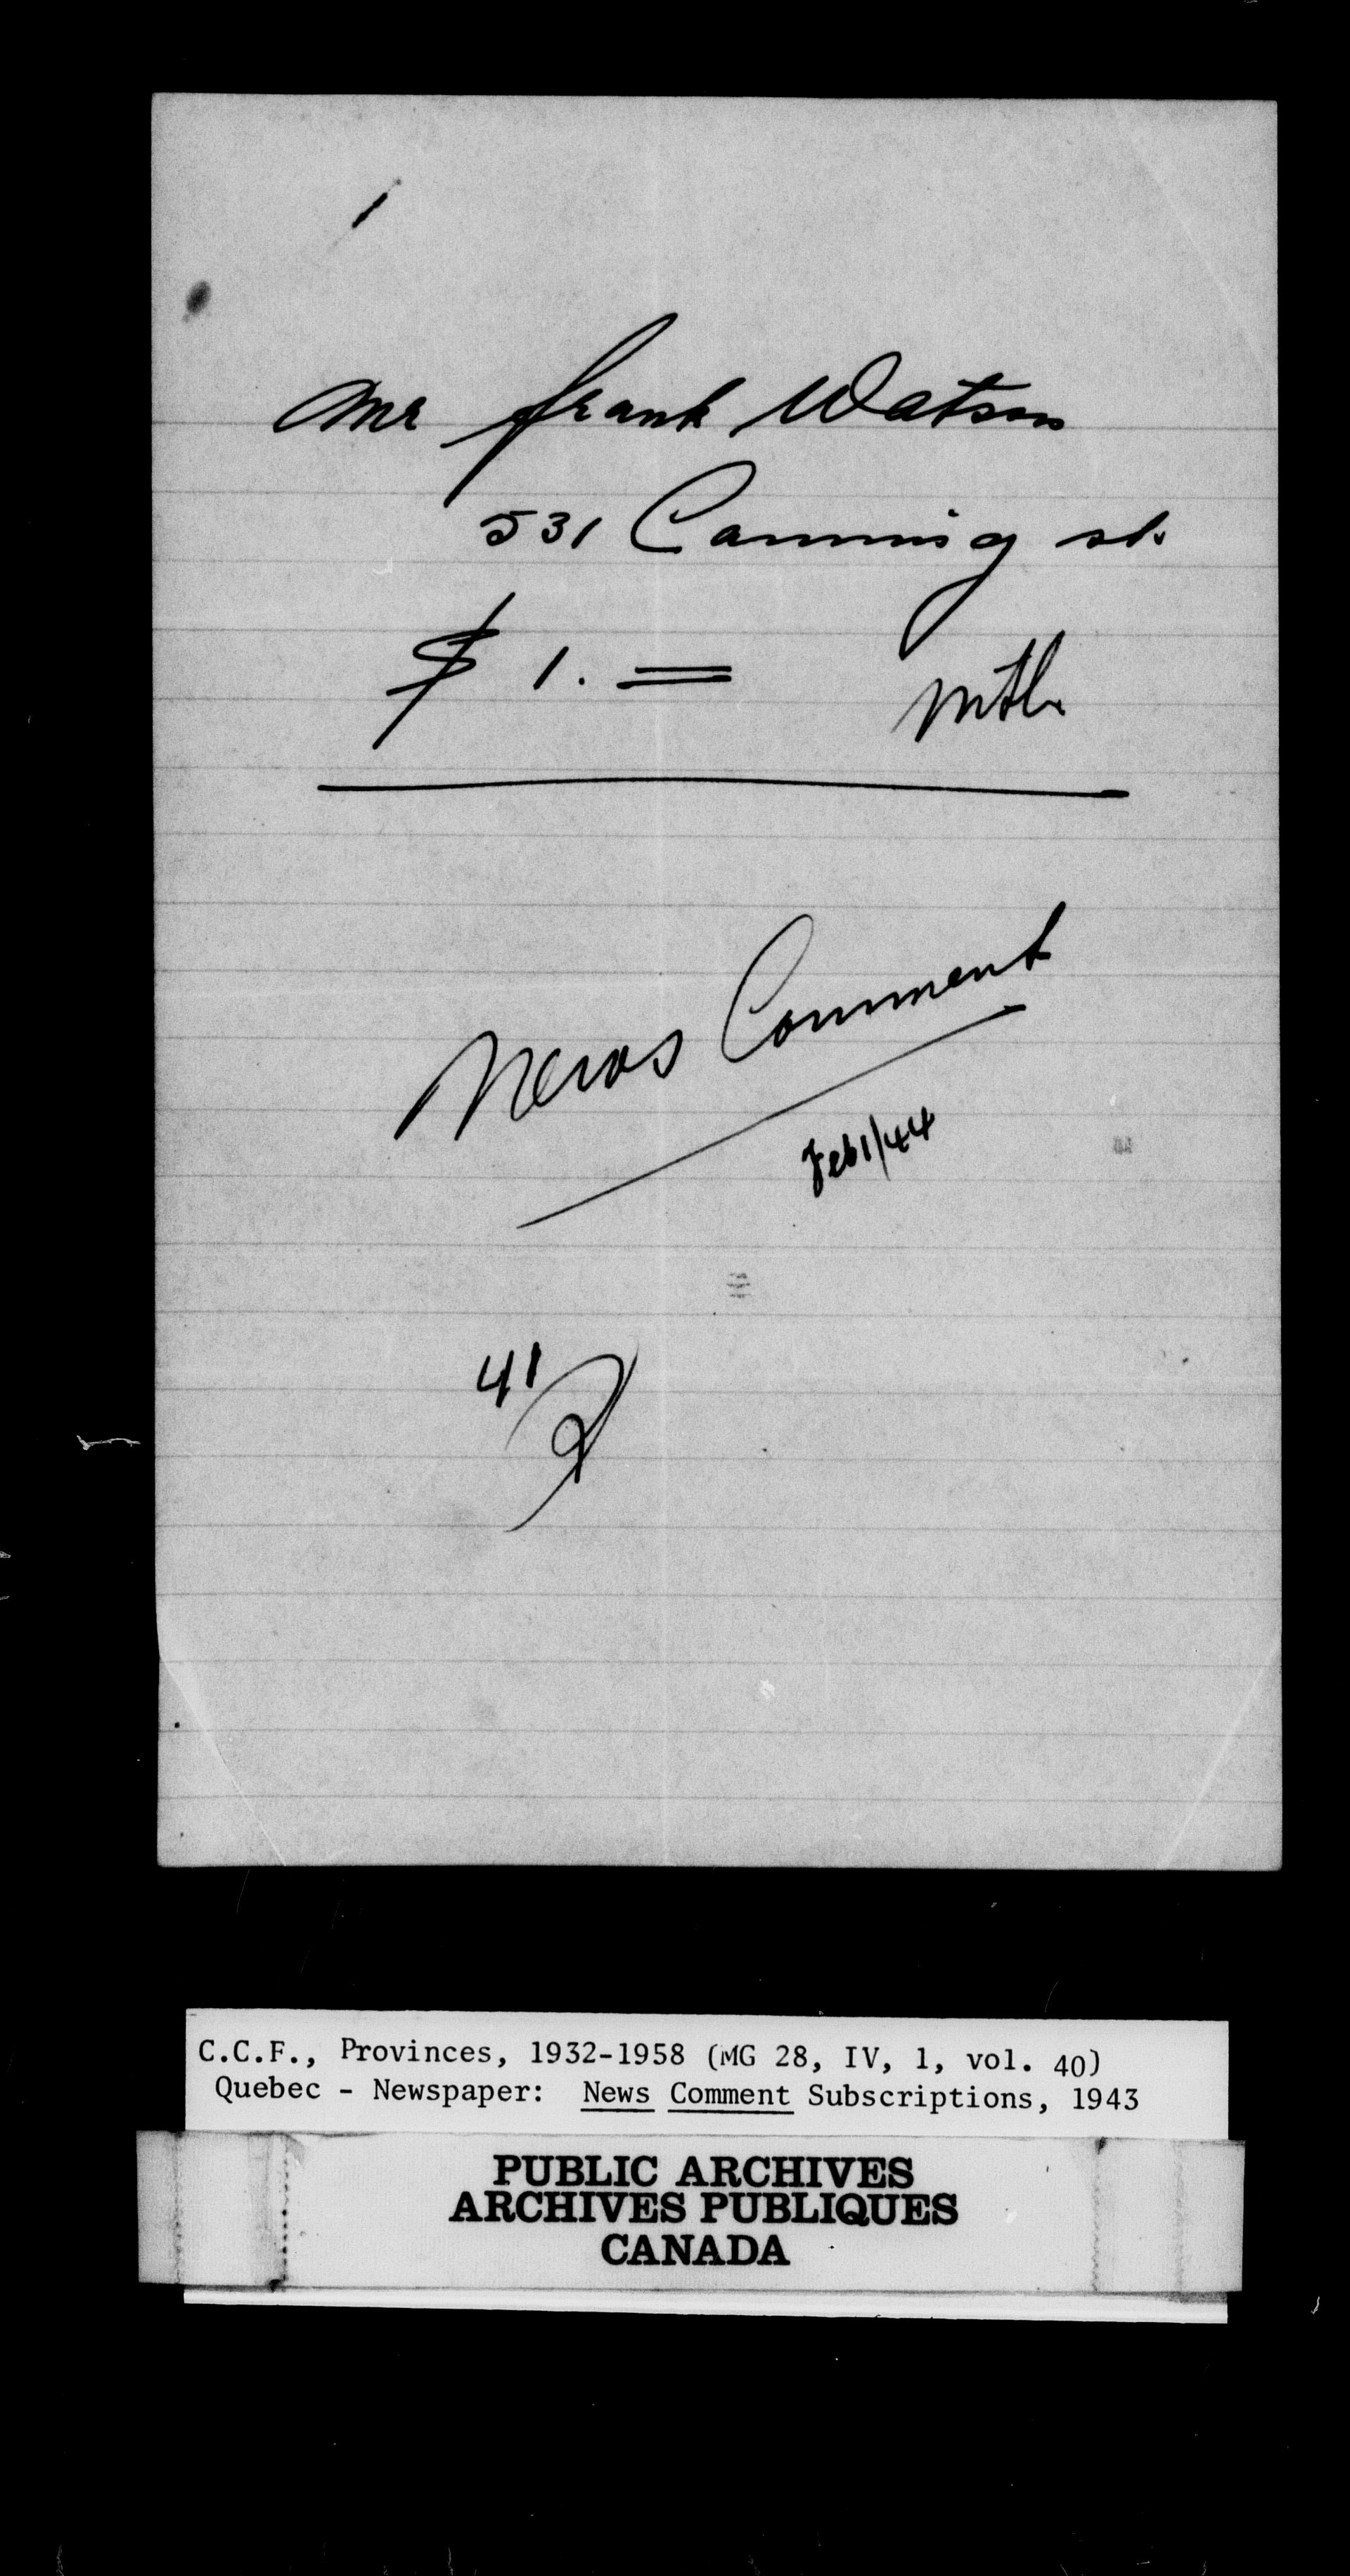 Mr Frank Watson
531 Canning st.
$ 1. =
Mtl.
News Comment
Feb 1/44
41
C.C.F., Provinces, 1932-1958 (MG 28, IV, 1, vol. 40)
Quebec - Newspaper: News Comment Subscriptions, 1943
PUBLIC ARCHIVES
ARCHIVES PUBLIQUES
CANADA